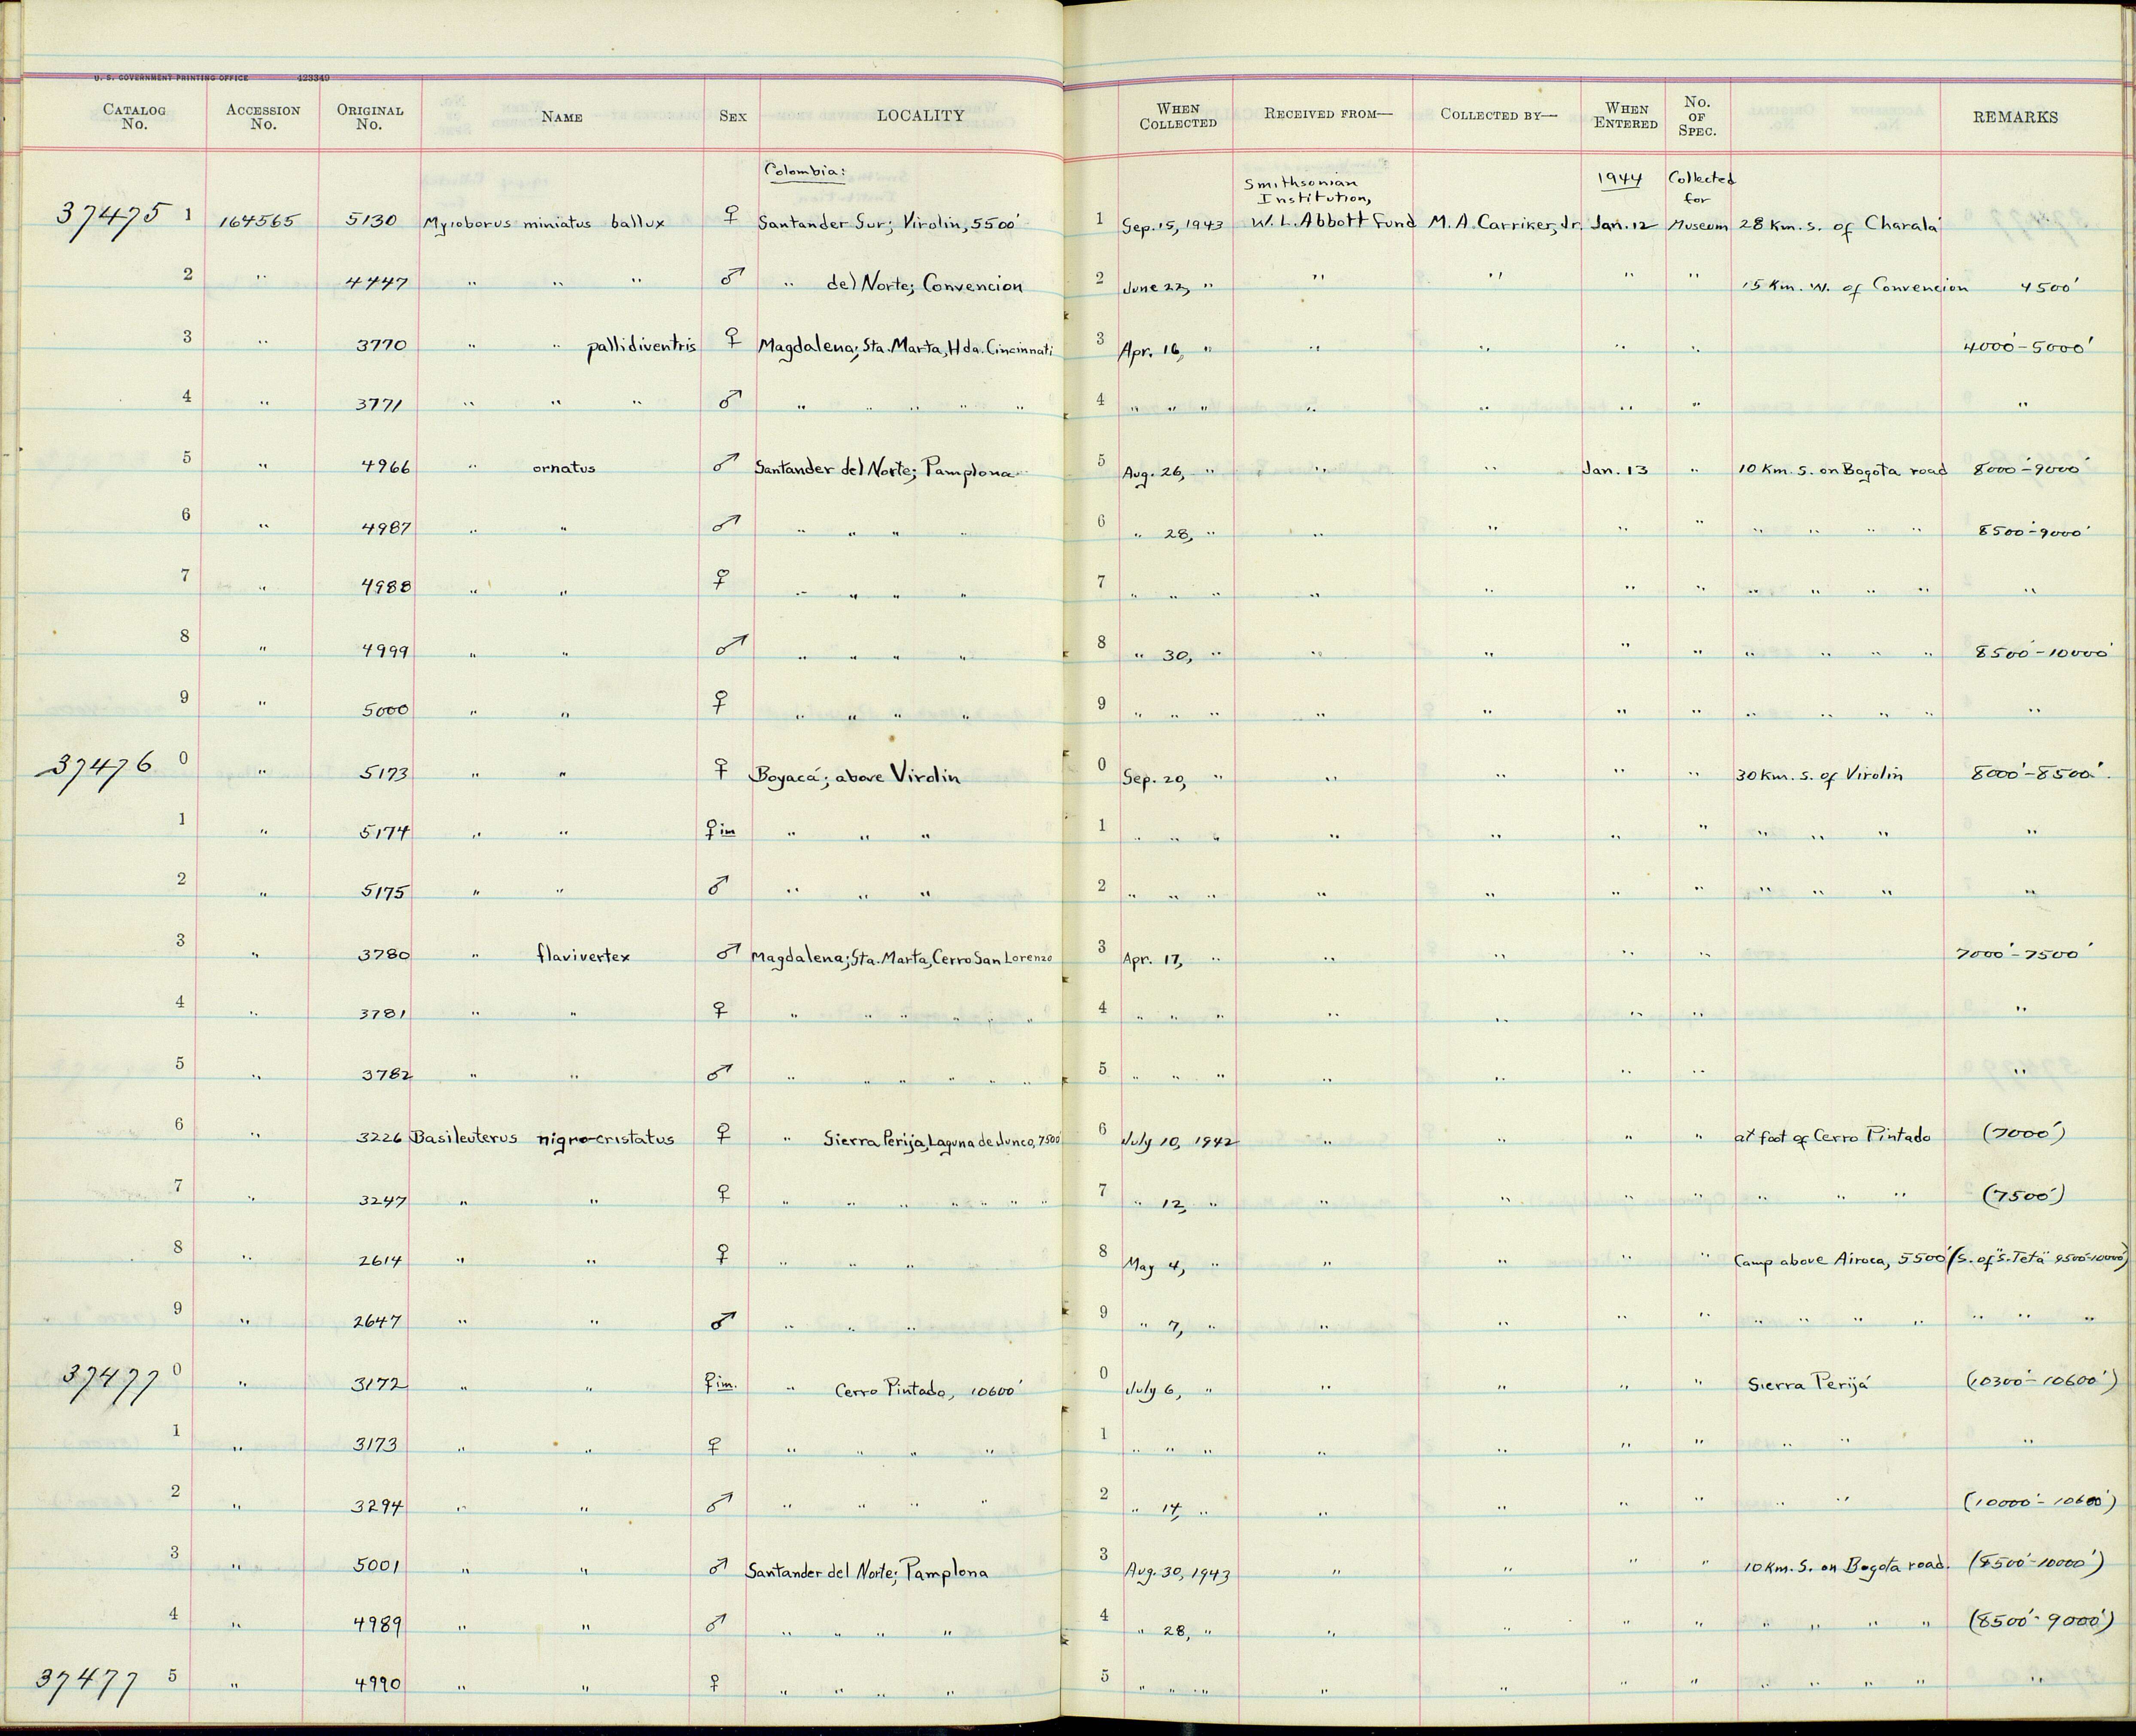 U. S. GOVERNMENT PRINTING OFFICE 423349
CATALOG No. ACCESSION No. ORIGINAL No. NAME SEX LOCALITY WHEN COLLECTED RECEIVED FROM— COLLECTED BY— WHEN ENTERED No. OF SPEC. REMARKS
Colombia: Smithsonian Institution, 1944 Collected for
37475 1 164565 5130 Myioborus miniatus ballux ♀ Santander Sur; Virolin, 5500' 1 Sep. 15, 1943 W. L. Abbott Fund M. A. Carriker, Jr. Jan. 12 Museum 28 Km. s. of Charalá
2 " 4447 " " " ♂ " del Norte; Convencion 2 June 22, " " " " " 15 Km. W. of Convencion 4500'
3 " 3770 " " pallidiventris ♀ Magdalena; Sta. Marta, Hda. Cincinnati 3 Apr. 16, " " " " " 4000'-5000'
4 " 3771 " " " ♂ " " " " " 4 " " " " " " " "
5 " 4966 " ornatus ♂ Santander del Norte; Pamplona 5 Aug. 26, " " " Jan. 13 " 10 Km. s. on Bogota road 8000'-9000'
6 " 4987 " " ♂ " " " " 6 " 28, " " " " " " " " " 8500'-9000'
7 " 4988 " " ♀ " " " " 7 " " " " " " " " " " " "
8 " 4999 " " ♂ " " " " 8 " 30, " " " " " " " " " 8500'-10000'
9 " 5000 " " ♀ " " " " 9 " " " " " " " " " " " "
37476 0 " 5173 " " ♀ Boyacá; above Virolin 0 Sep. 20, " " " " " 30 Km. s. of Virolin 8000'-8500'.
1 " 5174 " " ♀ im " " " 1 " " " " " " " " " " "
2 " 5175 " " ♂ " " " 2 " " " " " " " " " " "
3 " 3780 " flavivertex ♂ Magdalena; Sta. Marta, Cerro San Lorenzo 3 Apr. 17, " " " " " 7000'-7500'
4 " 3781 " " ♀ " " " " " " 4 " " " " " " " "
5 " 3782 " " ♂ " " " " " " 5 " " " " " " " "
6 " 3226 Basileuterus nigro-cristatus ♀ " Sierra Perija, Laguna de Junco, 7500' 6 July 10, 1942 " " " " at foot of Cerro Pintado (7000')
7 " 3247 " " ♀ " " " " " " " 7 " 12, " " " " " " " " (7500')
8 " 2614 " " ♀ " " " 8 May 4, " " " " " Camp above Airoca, 5500' (s. of "S. Teta" 9500-10000')
9 " 2647 " " ♂ " " " 9 " 7, " " " " " " " " " " " "
37477 0 " 3172 " " ♀ im. " Cerro Pintado, 10600' 0 July 6, " " " " " Sierra Perijá (10300'-10600')
1 " 3173 " " ♀ " " " " 1 " " " " " " " " " "
2 " 3294 " " ♂ " " " " 2 " 14, " " " " " " " (10000'-10600')
3 " 5001 " " ♂ Santander del Norte; Pamplona 3 Aug. 30, 1943 " " " " 10 Km. S. on Bogota road. (8500'-10000')
4 " 4989 " " ♂ " " " " 4 " 28, " " " " " " " " " (8500'-9000')
37477 5 " 4990 " " ♀ " " " " 5 " " " " " " " " " " " "